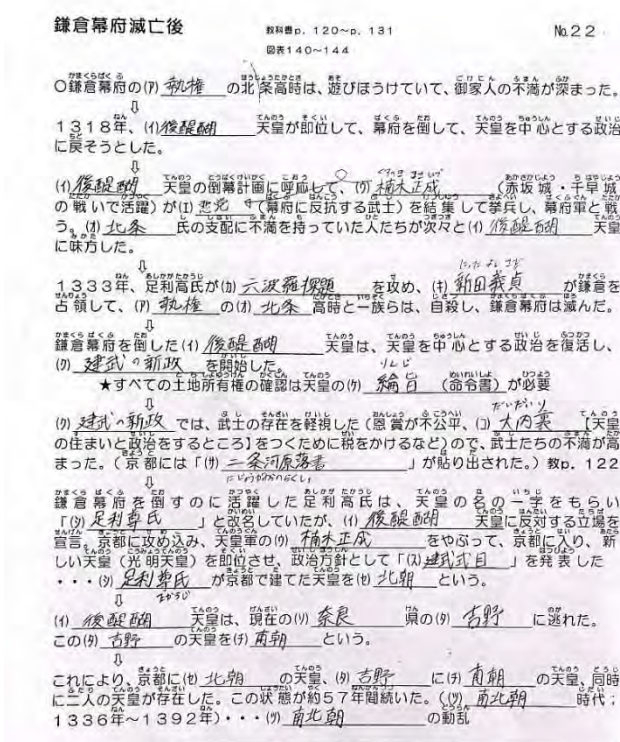 鎌倉幕府滅亡後 教科書p. 120~p. 131 No.22
図表140~144
○鎌倉幕府の(ｱ) 執権 の北条高時は、遊びほうけていて、御家人の不満が深まった。
⇩
1318年、(ｲ)後醍醐 天皇が即位して、幕府を倒して、天皇を中心とする政治
に戻そうとした。
⇩
(ｲ)後醍醐 天皇の倒幕計画に呼応して、(ｳ) 楠木正成 (赤坂城・千早城
の戦いで活躍)が(ｴ) 悪党 (幕府に反抗する武士)を結集して挙兵し、幕府軍と戦
う。(ｵ) 北条 氏の支配に不満を持っていた人たちが次々と(ｲ) 後醍醐 天皇
に味方した。
⇩
1333年、足利高氏が(ｶ) 六波羅探題 を攻め、(ｷ) 新田義貞 が鎌倉を
占領して、(ｱ) 執権 の(ｵ) 北条 高時と一族らは、自殺し、鎌倉幕府は滅んだ。
⇩
鎌倉幕府を倒した(ｲ) 後醍醐 天皇は、天皇を中心とする政治を復活し、
(ｸ) 建武の新政 を開始した
★すべての土地所有権の確認は天皇の(ｹ) 綸旨 (命令書)が必要
⇩
(ｸ) 建武の新政 では、武士の存在を軽視した(恩賞が不公平、(ｺ) 大内裏 【天皇
の住まいと政治をするところ】をつくために税をかけるなど)ので、武士たちの不満が高
まった。(京都には「(ｻ) 二条河原落書 」が貼り出された。)教p. 122
⇩
鎌倉幕府を倒すのに活躍した足利高氏は、天皇の名の一字をもらい
「(ｼ) 足利尊氏 」と改名していたが、(ｲ) 後醍醐 天皇に反対する立場を
宣言、京都に攻め込み、天皇軍の(ｳ) 楠木正成 をやぶって、京都に入り、新
しい天皇(光明天皇)を即位させ、政治方針として「(ｽ)建武式目 」を発表した
・・・(ｼ) 足利尊氏 が京都で建てた天皇を(ｾ) 北朝 という。
⇩
(ｲ) 後醍醐 天皇は、現在の(ｿ) 奈良 県の(ﾀ) 吉野 に逃れた。
この(ﾀ) 吉野 の天皇を(ﾁ) 南朝 という。
⇩
これにより、京都に(ｾ) 北朝 の天皇、(ﾀ) 吉野 に(ﾁ) 南朝 の天皇、同時
に二人の天皇が存在した。この状態が約57年間続いた。((ﾂ) 南北朝 時代:
1336年~1392年)・・・(ﾂ) 南北朝 の動乱